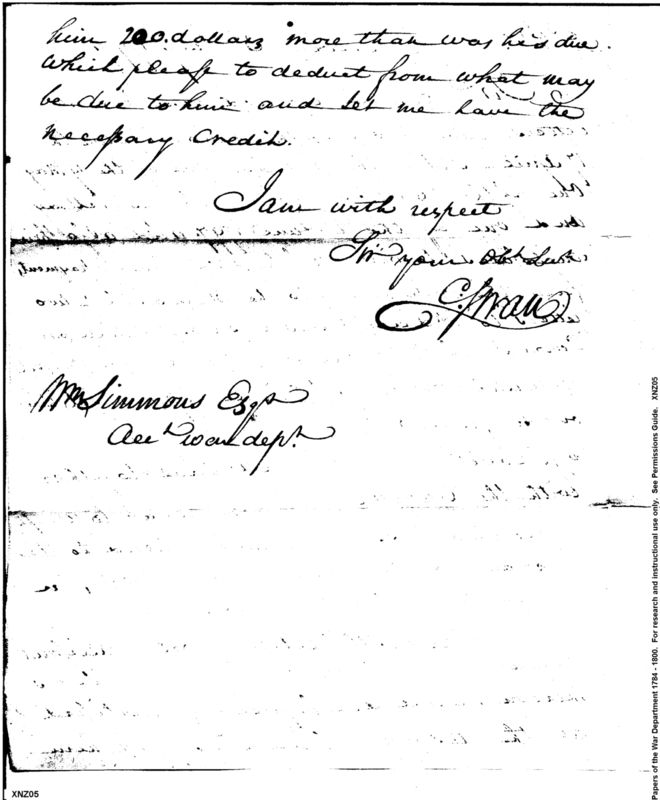 him 200. dollars more than was his due.
Which please to deduct from what may
be due to him and let me have the
necessary Credit.
I am with respect
Sir your Obt Servt
C. Swan
Wm Simmons Esqr
Acct war dept.
Papers of the War Department 1784 - 1800. For research and instructional use only. See Permissions Guide. XNZ05
XNZ05